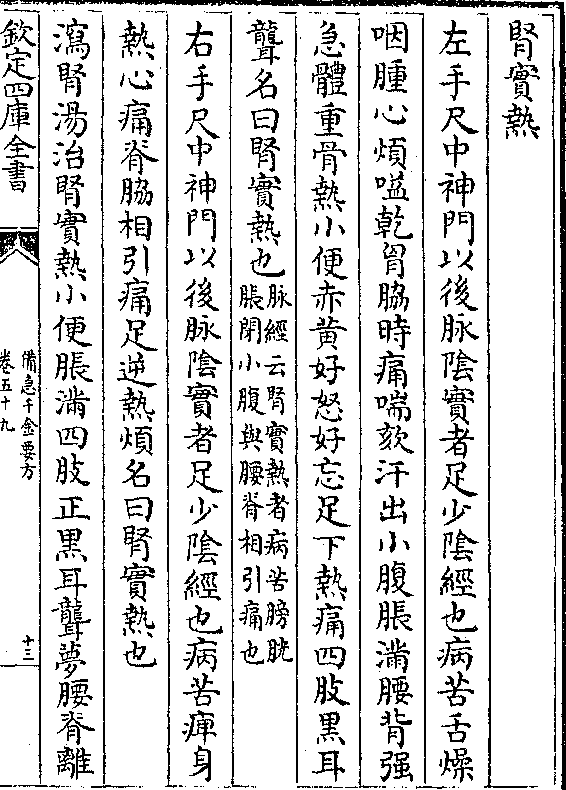 腎實熱
左手尺中神門以後脉陰實者足少陰經也病苦舌燥
咽腫心煩嗌乾胷脇時痛喘欬汗出小腹脹滿腰背强
急體重骨熱小便赤黄好怒好忘足下熱痛四肢黒耳
聾名曰腎實熱也
脉經云腎實熱者病苦膀胱
脹閉小腹與腰脊相引痛也
右手尺中神門以後脉陰實者足少陰經也病苦痺身
熱心痛脊脇相引痛足逆熱煩名曰腎實熱也
瀉腎湯治腎實熱小便脹滿四肢正黒耳聾夢腰脊離
欽定四庫全書
備急千金要方
卷五十九
十三